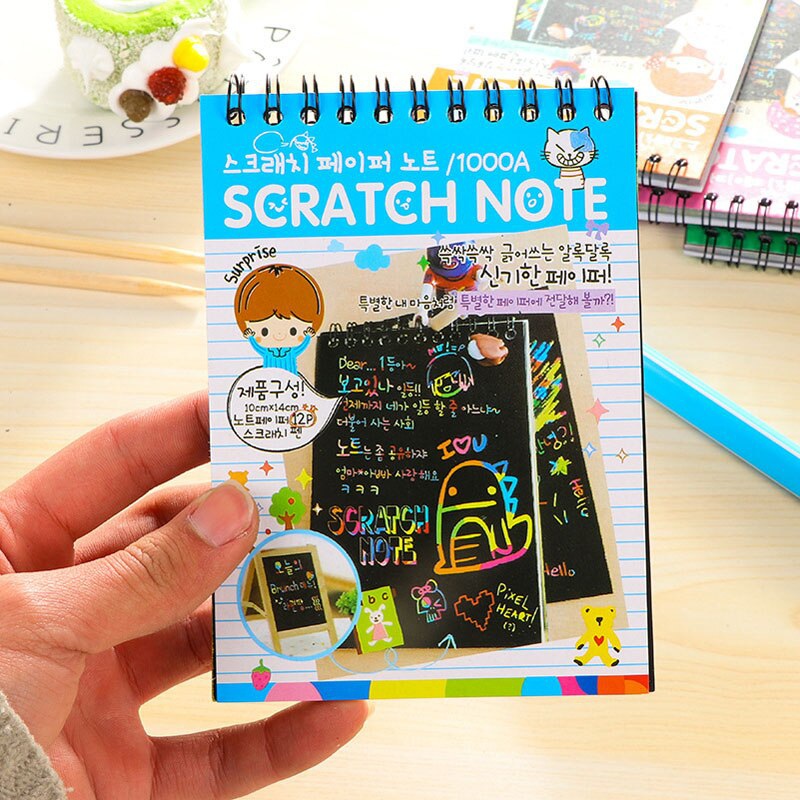 스크래치 페이퍼 노트 /1000A
SCRATCH NOTE
Surprise
쓱싹쓱싹 긁어쓰는 알록달록
신기한 페이퍼!
특별한 내 마음처럼 특별한 페이퍼에 전달해 볼까?!
제품구성!
10cm×14cm
노트페이퍼 12P
스크래치 펜
Dear... 1등아~
보고있나 일등!!
언제까지 네가 일등 할 줄 아느냐~
더불어 사는 사회
노트는 좀 공유하쟈
엄마*아빠 사랑해요
ㅋㅋㅋ
I♡U
SCRATCH
NOTE
안녕?!
Hello
Hello
PIXEL
HEART!
(?)
오늘의
Brunch 메뉴!
b c
SSERI